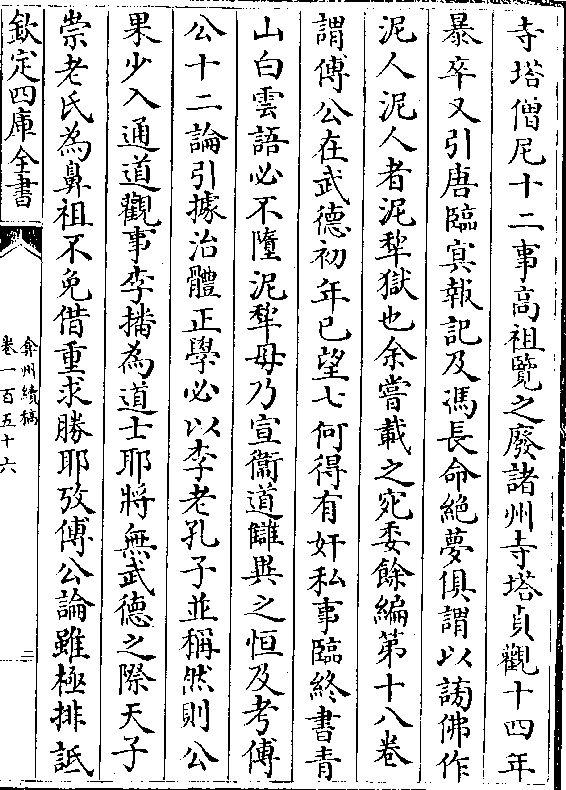 寺塔僧尼十二事高祖覽之廢諸州寺塔貞觀十四年
暴卒又引唐臨㝠報記及馮長命絶夢俱謂以謗佛作
泥人泥人者泥犂獄也余嘗載之宛委餘編第十八卷
謂傅公在武德初年已望七何得有奸私事臨終書青
山白雲語必不墮泥犂毋乃宣衞道讎與之恒及考傅
公十二論引據治體正學必以李老孔子並稱然則公
果少入通道觀事李播為道士耶將無武德之際天子
崇老氏為鼻祖不免借重求勝耶攷傅公論雖極排詆
欽定四庫全書
弇州續稿
卷一百五十六
二